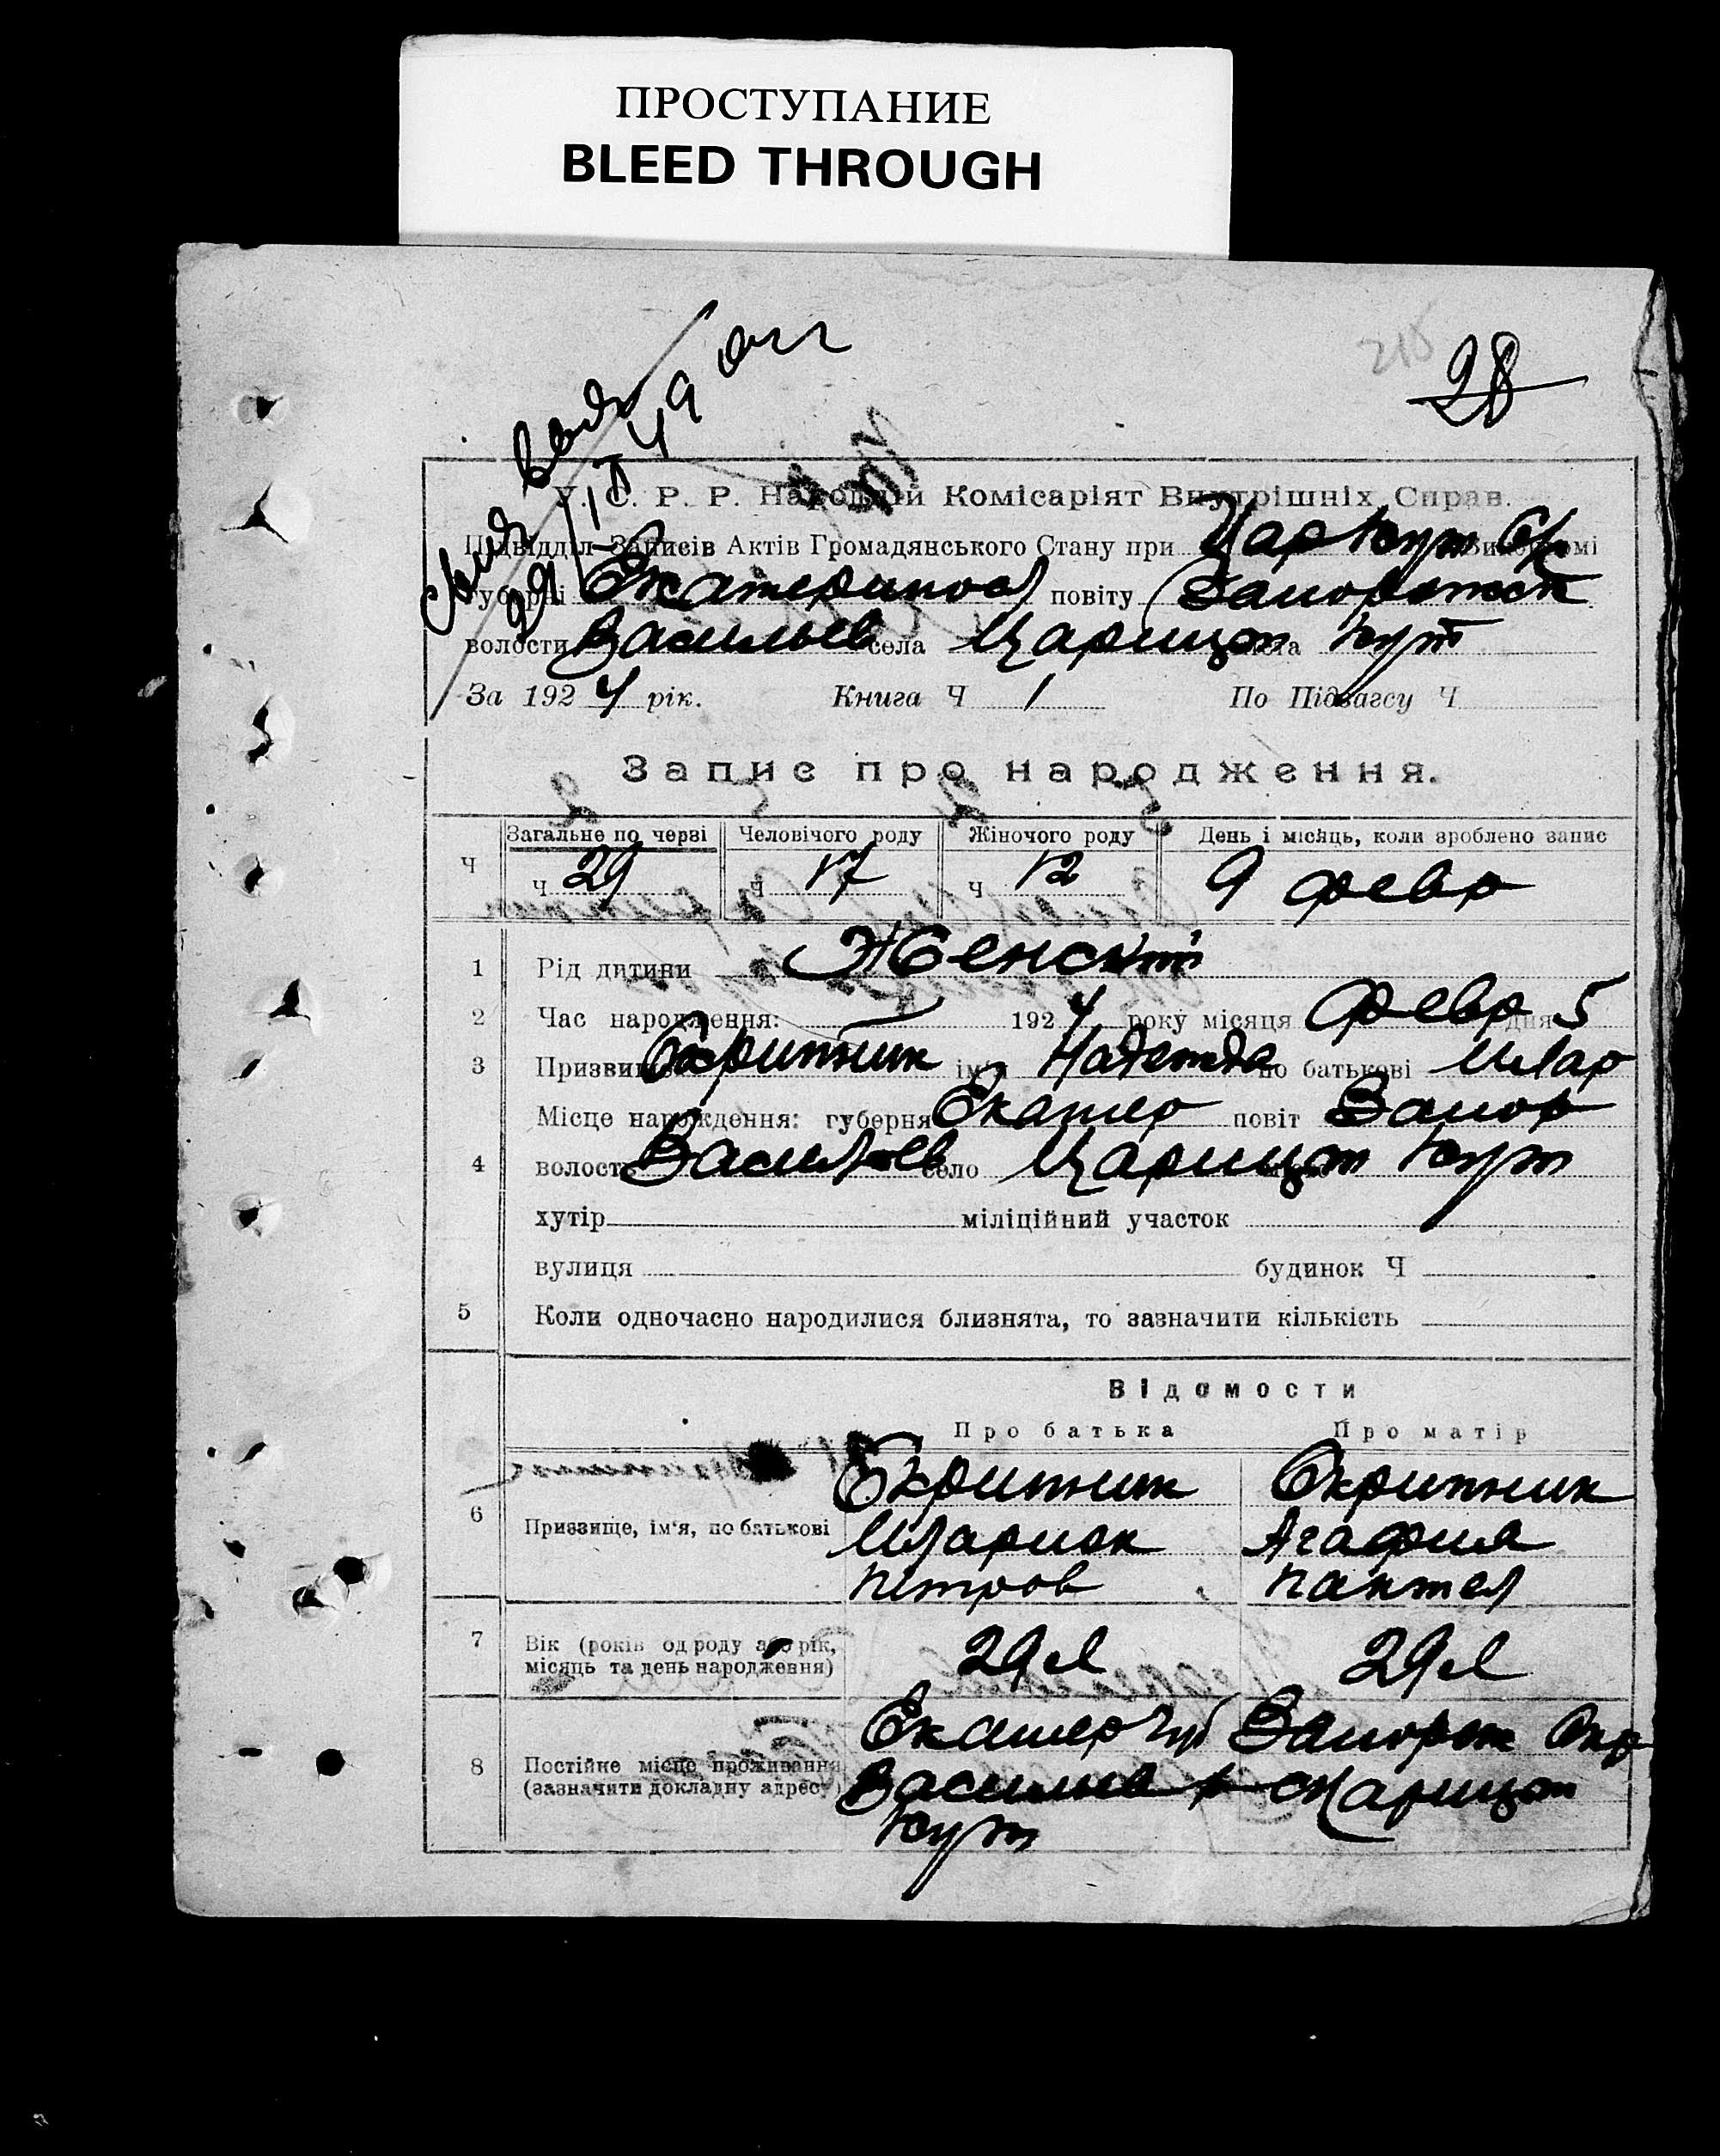 ПРОСТУПАНИЕ
BLEED THROUGH
28
У. С. Р. Р. Народній Комісаріят Внутрішніх Справ.
Підвідділ Записів Актів Громадянського Стану при Цар Кут Виконкомі
Губерні Екатеринос повіту Запорожск
волости Васильев села Царицын міста Кут
За 1924 рік. Книга Ч 1 По Підзагсу Ч
Запис про народження.
Загальне по черзі Человічого роду Жіночого роду День і місяць, коли зроблено запис
Ч Ч 29 Ч 17 Ч 12 9 февр
1 Рід дитини Женский
2 Час народження: 1924 року місяця февр дня 5
3 Призвище Скрипник ім'я Надежда по батькові Илар
Місце народження: губерня Екатер повіт Запор
4 волость Васильев село Царицын Кут
хутір міліційний участок
вулиця будинок Ч
5 Коли одночасно народилися близнята, то зазначити кількість
Відомости
Про батька Про матір
6 Призвище, ім'я, по батькові
Скрипник Скрипник
Иларион Агафия
Петров Пантел
7 Вік (років од роду або рік, місяць та день народження) 29 л 29 л
8 Постійне місце проживання (зазначити докладну адресу)
Екатер губ Запорож Окр
Васильев р с Царицын
Кут